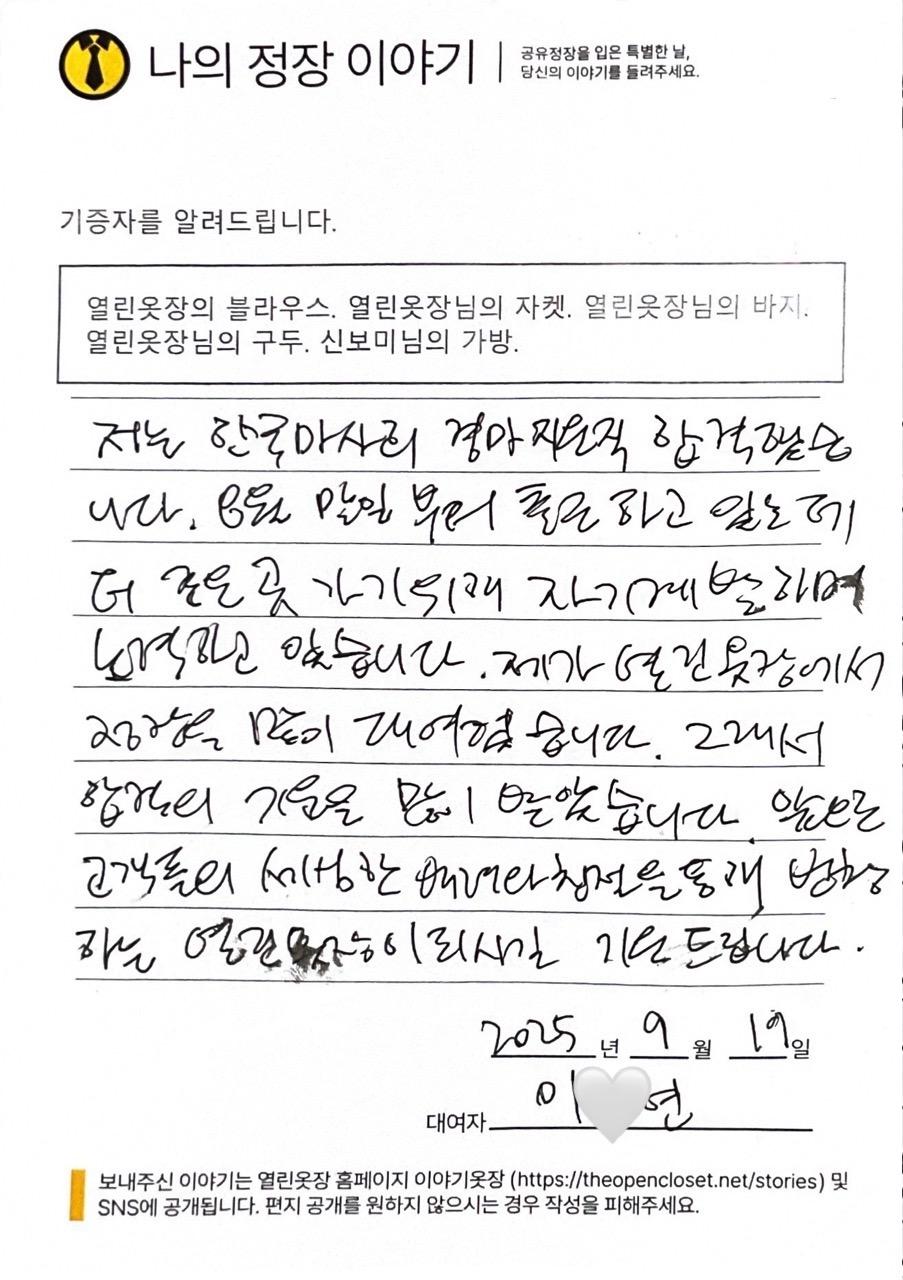 나의 정장 이야기
공유정장을 입은 특별한 날,
당신의 이야기를 들려주세요.
기증자를 알려드립니다.
열린옷장의 블라우스. 열린옷장님의 자켓. 열린옷장님의 바지.
열린옷장님의 구두. 신보미님의 가방.
저는 한국마사회 경마지원직 합격했습
니다. 8월 말일 부터 출근하고 있는데
더 좋은 곳 가기위해 자기계발하며
노력하고 있습니다. 제가 열린옷장에서
정장을 많이 대여했습니다. 그래서
합격의 기운을 많이 받았습니다. 앞으로
고객들의 세심한 배려와 친절을 통해 번창
하는 열린옷장이 되시길 기원드립니다.
2025년 9월 19일
대여자 이 연
보내주신 이야기는 열린옷장 홈페이지 이야기옷장 (https://theopencloset.net/stories) 및
SNS에 공개됩니다. 편지 공개를 원하지 않으시는 경우 작성을 피해주세요.